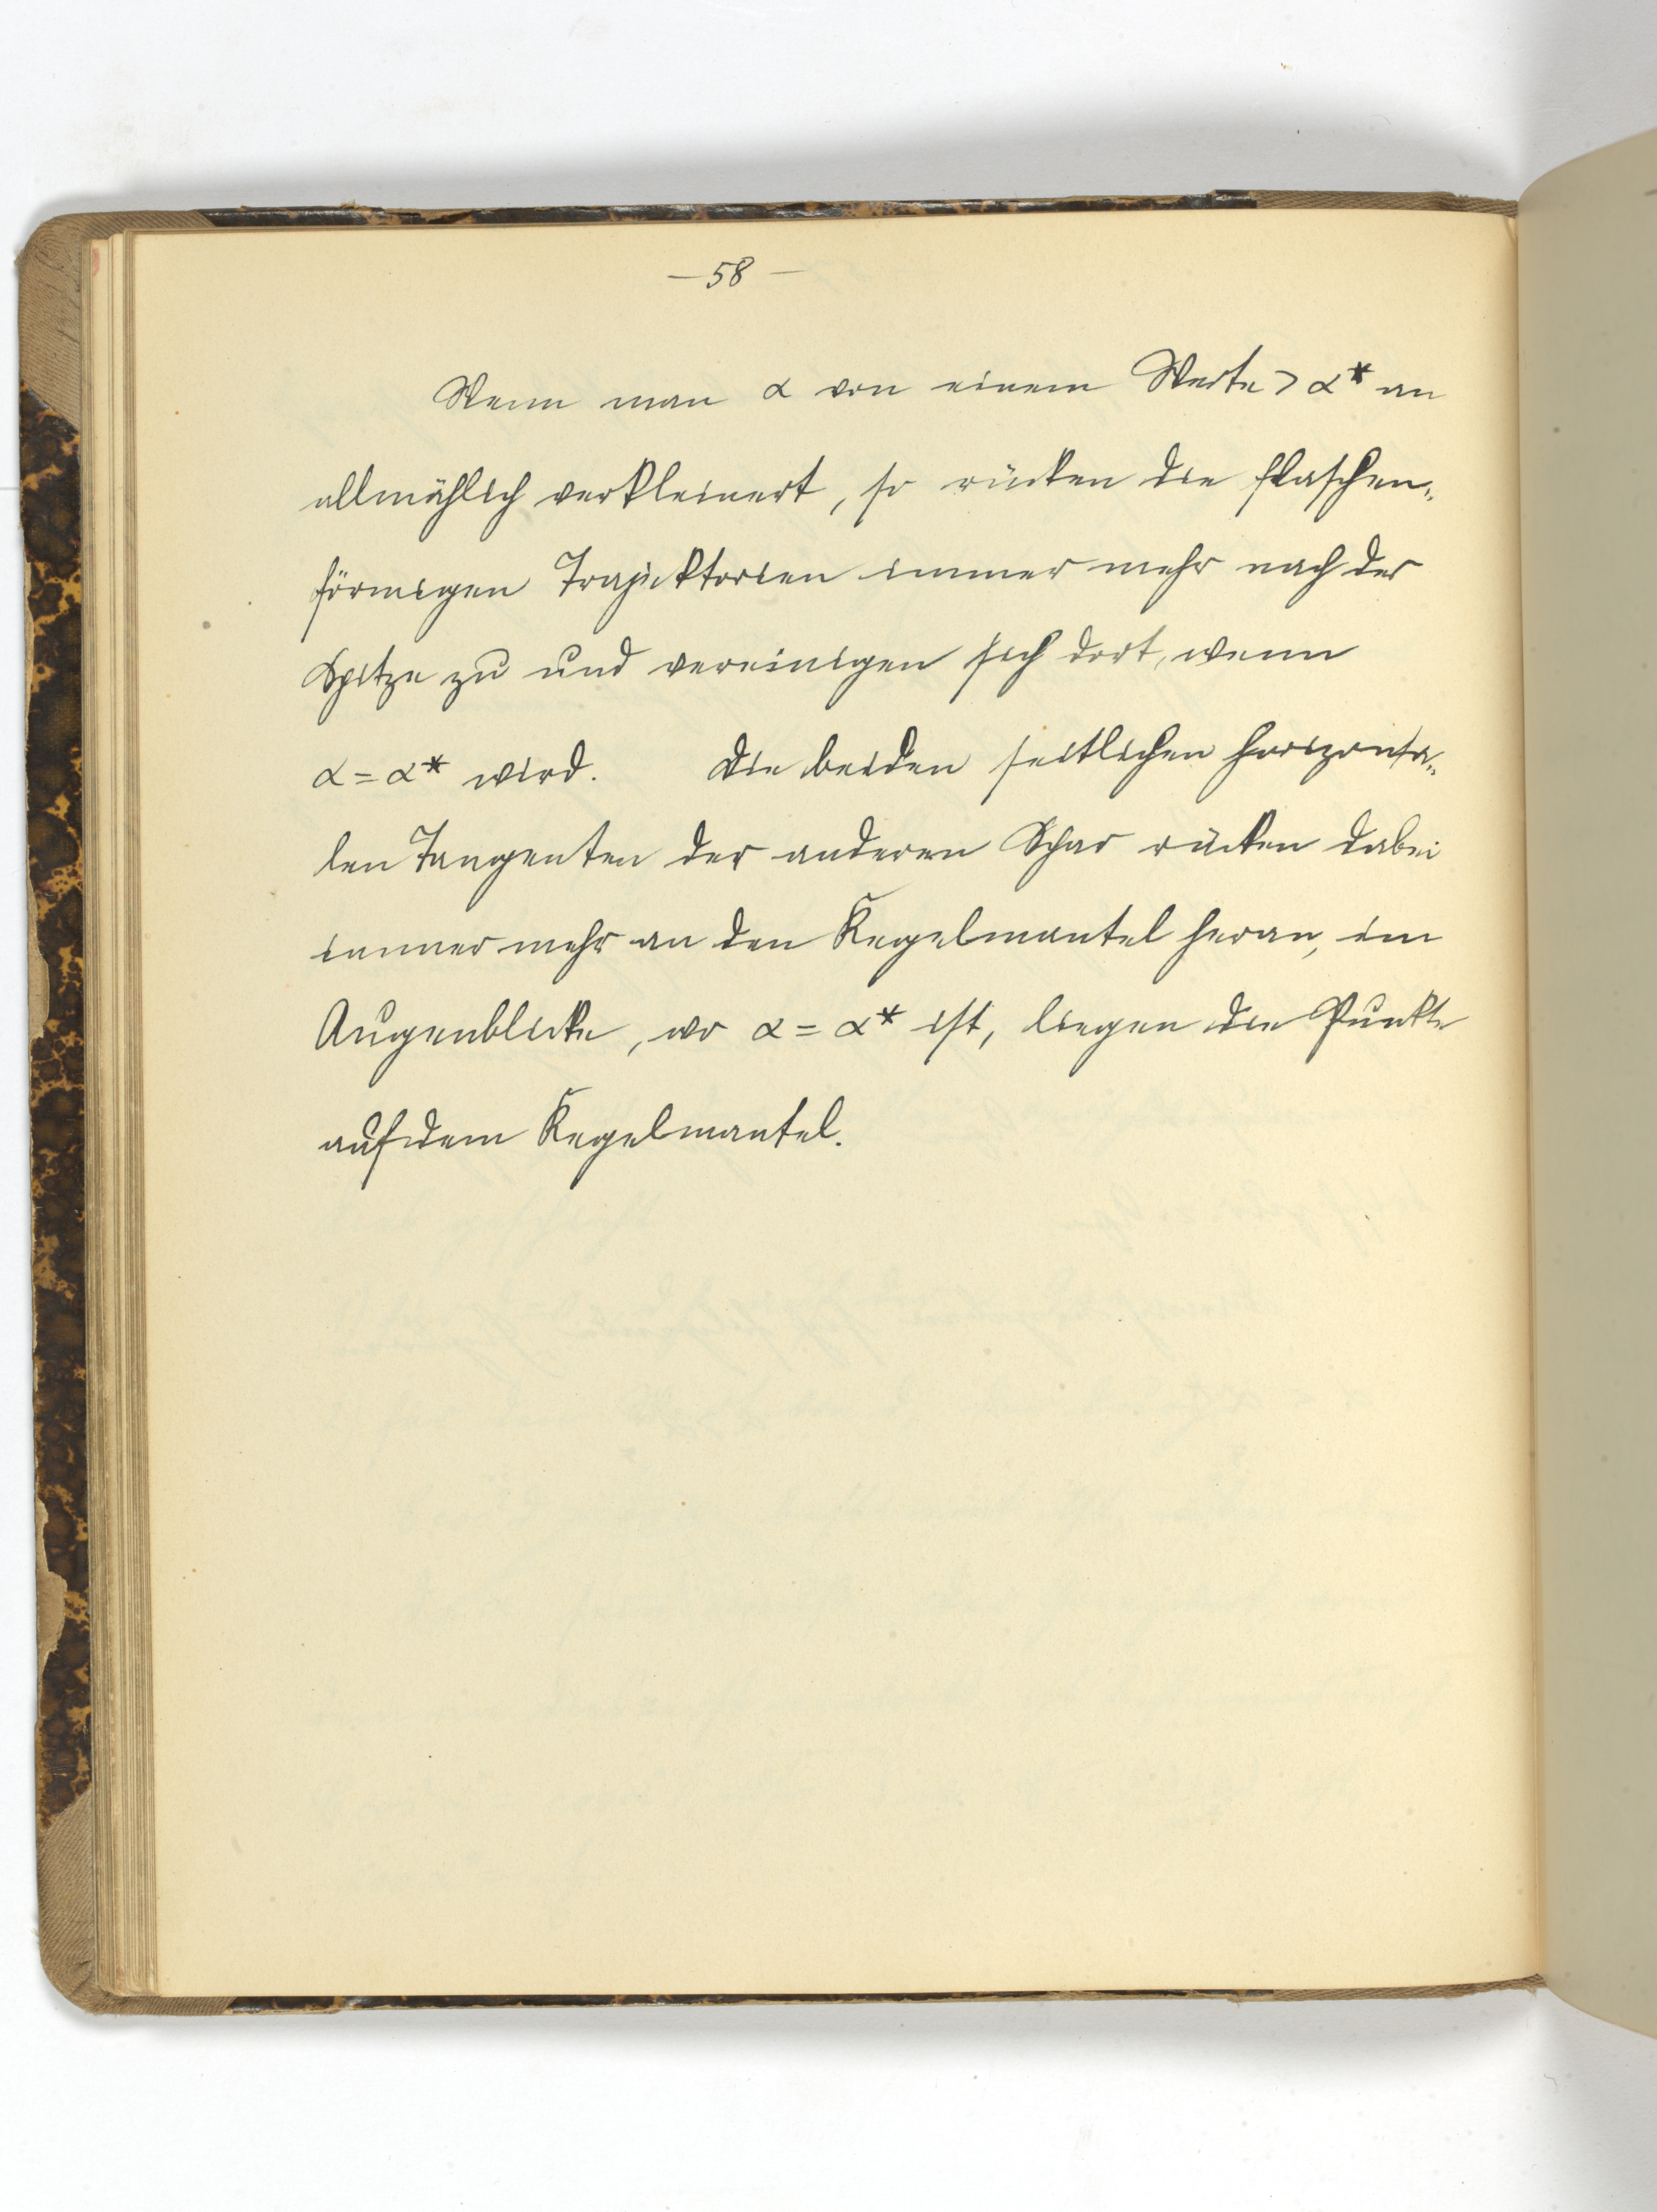 — 58 —
Wenn man α von einem Werte > α* an
allmählich verkleinert, so rücken die flaschen„
förmigen Trajektorien immer mehr nach der
Spitze zu und vereinigen sich dort, wenn
α = α* wird. Die beiden seitlichen horizonta„
len Tangenten der anderen Schar rücken dabei
immer mehr an den Kegelmantel heran, im
Augenblicke, wo α = α* ist, liegen die Punkte
auf dem Kegelmantel.